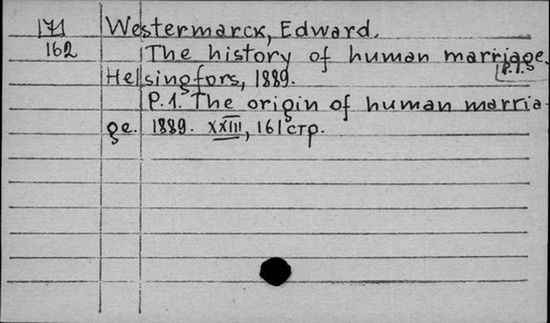 171 Westermarck, Edward.
162 The history of human marriage.
P.1.
Helsingfors, 1889.
P.1. The origin of human marria-
ge. 1889. XXIII, 161 стр.